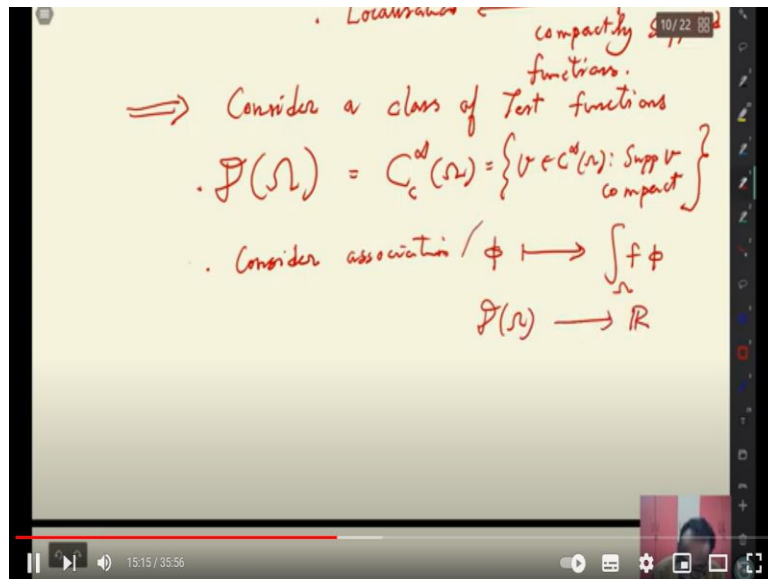 . Localisation
10/22
compactly
functions.
⟹ Consider a class of Test functions
. 𝒟(Ω) = C_c^∞(Ω) = { v ∈ C^∞(Ω): Supp v compact }
. Consider association / ϕ ⟼ ∫_Ω f ϕ
𝒟(Ω) ⟶ ℝ
15:15 / 35:56